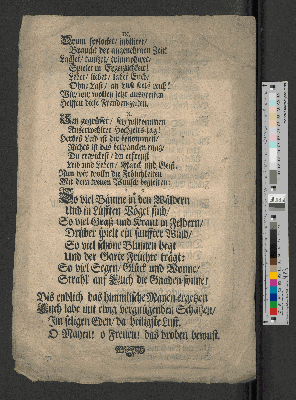 IX.
Drum frolocket/ jubiliret/
Braucht der angenehmen Zeit
Lachet/ tantzet/ triumphiret/
Spielet in Ergetzlichkeit!
Lebet/ liebet/ labet Euch/
Ohn' Last/ an Lust
Wir/ wir wollen jetzt
Helffen diese Freuden
X.
Sey gegrüsset/ Sey willkommen
Auserwehlter Hochzeits-Tag!
Herbes Leid ist Dir benommen/
Nichts ist das
Du erwecktest/ Du erfreust
Leib und Leben/ Marck und Geist.
Nun wir woll'n die Fröhligkeiten
Mit dem treuen Wunsch begleiten:
So viel Bäume in den Wäldern
Und in Lüfften Vögel sind/
So viel Graß und Kraut in Feldern/
Drüber spielt ein sanffter Wind/
So viel schöne Bluhmen hegt
Und der Garte Früchte trägt:
So viel Segen/ Glück und Wonne/
Strahl' auf Euch die Gnaden-Sonne!
Bis endlich das himmlische Mayen-ergetzen
Euch labe mit ewig vergnügenden Schätzen/
Im seligen Eden/ da heiligste Lust.
O Mayen! o Freuen! das droben bewust.